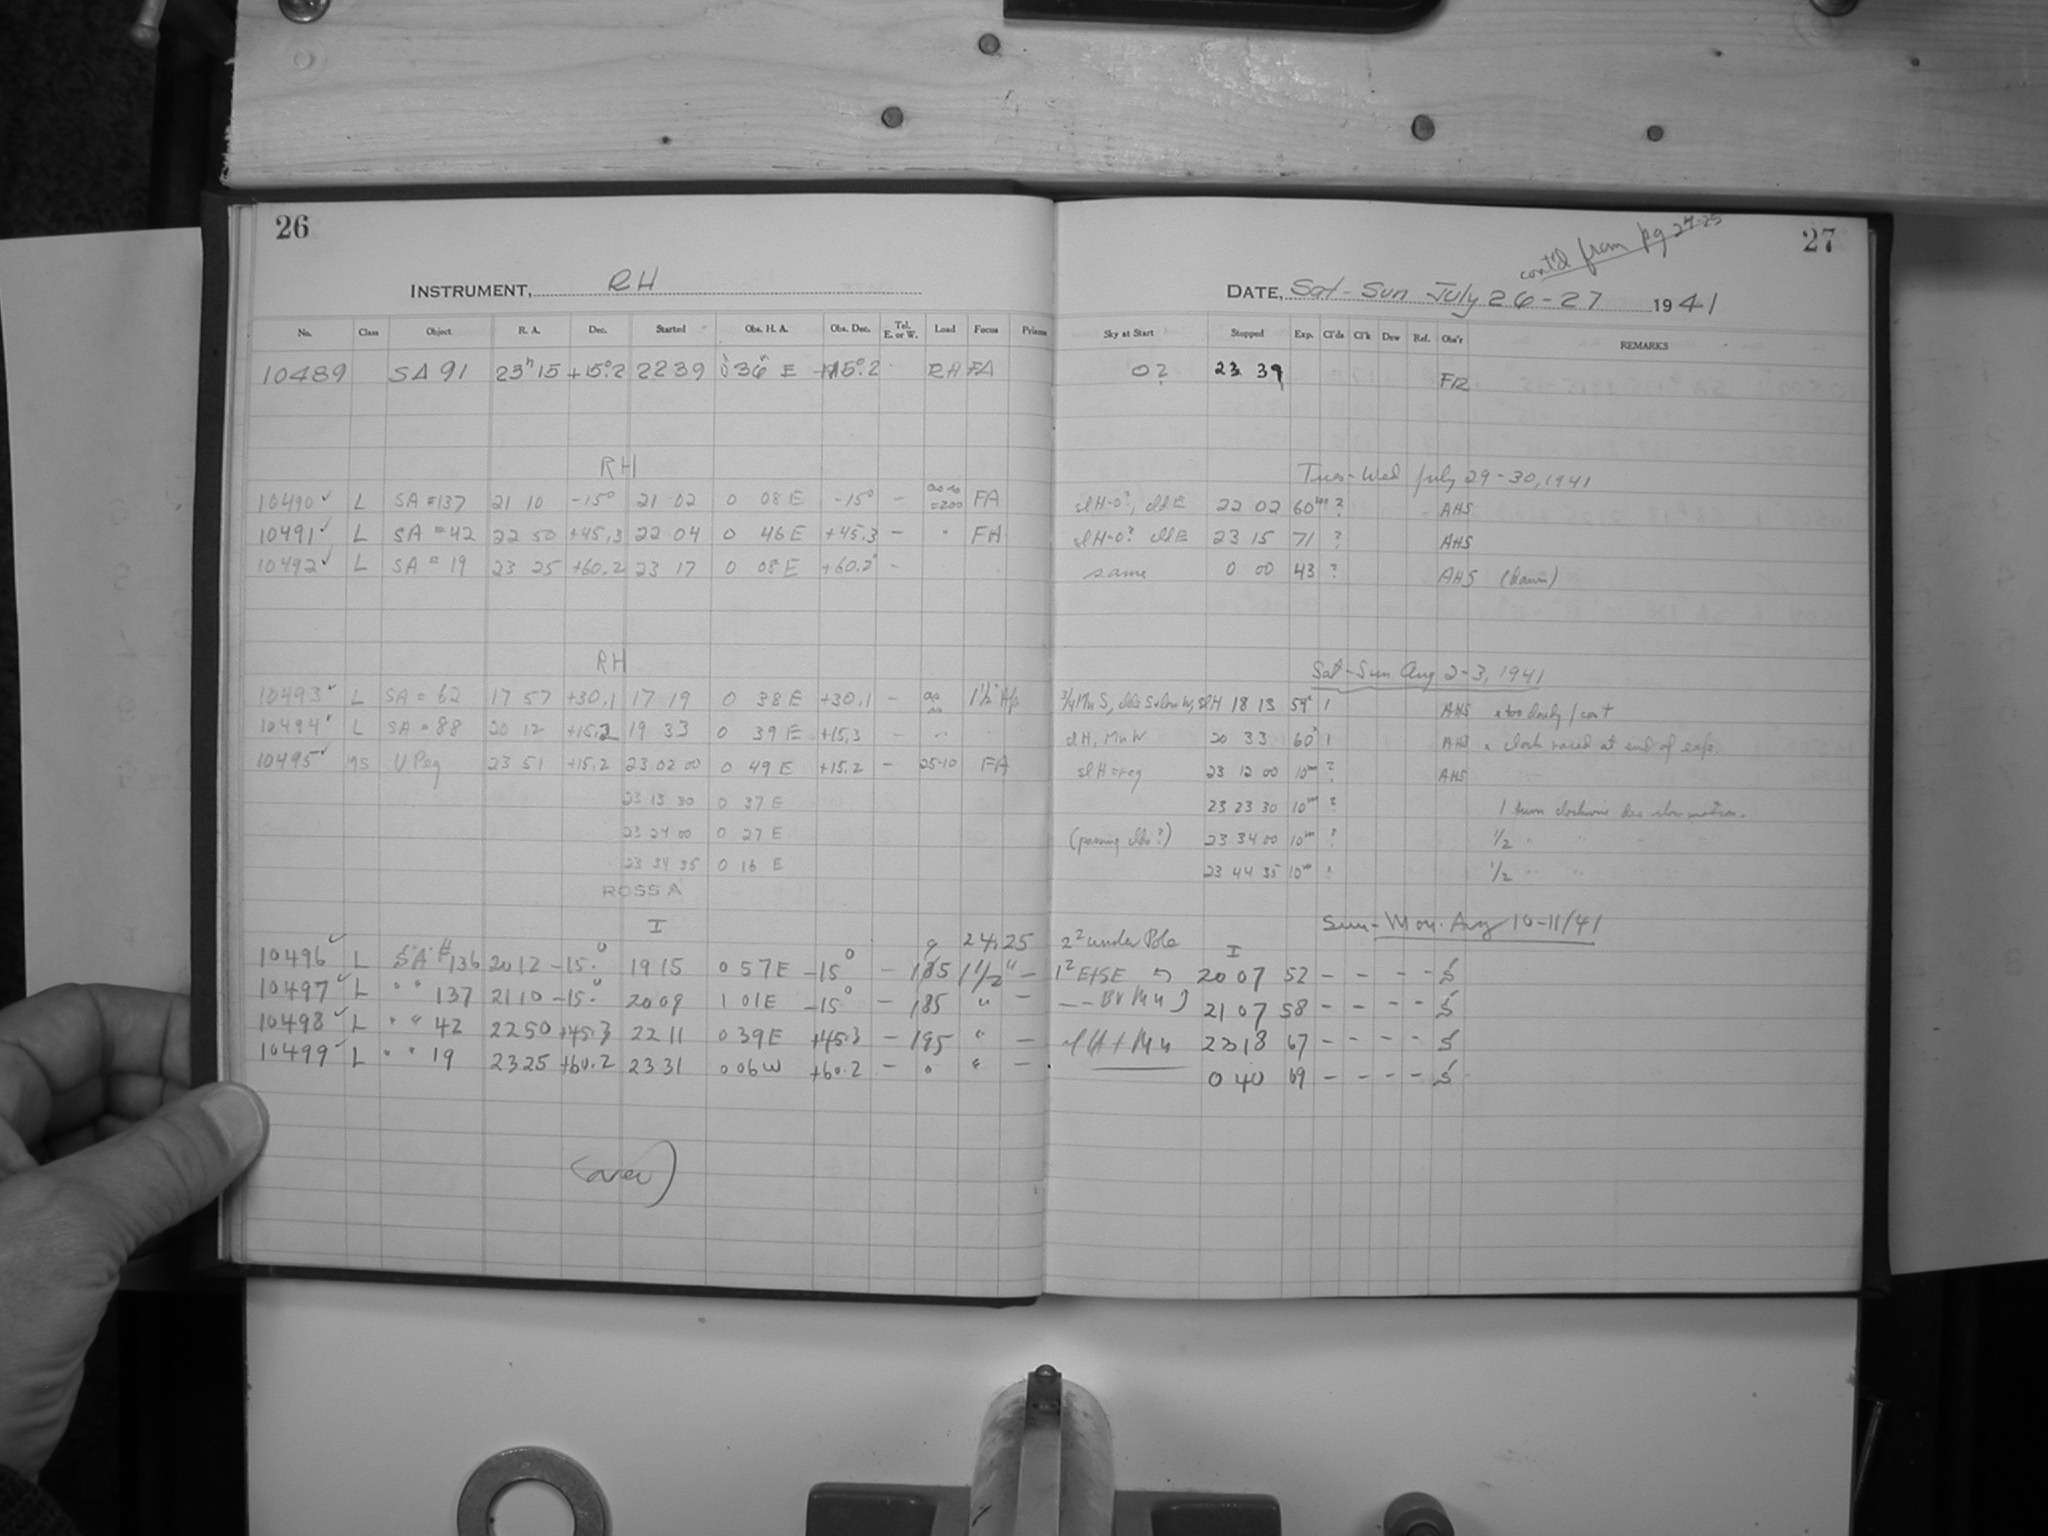 26
INSTRUMENT, RH
No. Class Object R. A. Dec. Started Obs. H. A. Obs. Dec. Tel. E. or W. Load Focus Prisms
10489 SA 91 23h 15 +15°.2 22 39 0 36 E +15°.2 RH FA
RH
10490 ✓ L SA #137 21 10 -15° 21 02 0 08 E -15° - =200 FA
10491 ✓ L SA #42 22 50 +45.3 22 04 0 46 E +45.3 - " FA
10492 ✓ L SA #19 23 25 +60.2 23 17 0 08 E +60.2 -
RH
10493 ✓ L SA #62 17 57 +30.1 17 19 0 38 E +30.1 - 1½"
10494 ✓ L SA #88 20 12 +15.2 19 33 0 39 E +15.3 -
10495 ✓ MS U Peg 23 51 +15.2 23 02 00 0 49 E +15.2 - 25-10 FA
23 13 30 0 37 E
23 24 00 0 27 E
23 34 35 0 16 E
ROSS A
I
10496 ✓ L SA # 136 20 12 -15.° 19 15 0 57 E -15° - 185 1 1/2" -
24, 25
10497 ✓ L " " 137 21 10 -15.° 20 09 1 01 E -15° - 185 " -
10498 ✓ L " " 42 22 50 +45.3 22 11 0 39 E +45.3 - 195 " -
10499 ✓ L " " 19 23 25 +60.2 23 31 0 06 W +60.2 - " " -
(over)
27
cont'd from pg 24-25
DATE, Sat - Sun July 26 - 27 1941
Sky at Start Stopped Exp. Cl'ds Cl'k Dew Ref. Obs'r REMARKS
0? 23 39 FR
Tues-Wed July 29-30, 1941
22 02 60m ? AHS
23 15 71 ? AHS
same 0 00 43 ? AHS (dawn)
Sat-Sun Aug 2-3, 1941
18 13 54x 1 AHS x too cloudy / cont
20 33 60x 1 AHS x clock raced at end of exp.
23 12 00 10m ? AHS
23 23 30 10m ? 1 turn clockwise dec slow motion.
(passing clds?) 23 34 00 10m ? 1/2 "
23 44 35 10m ? 1/2 " "
Sun-Mon. Aug 10-11/41
2² under Pole I
1² E+SE 20 07 52 - - - - S
Br Mn 21 07 58 - - - - S
23 18 67 - - - - S
0 40 69 - - - - S